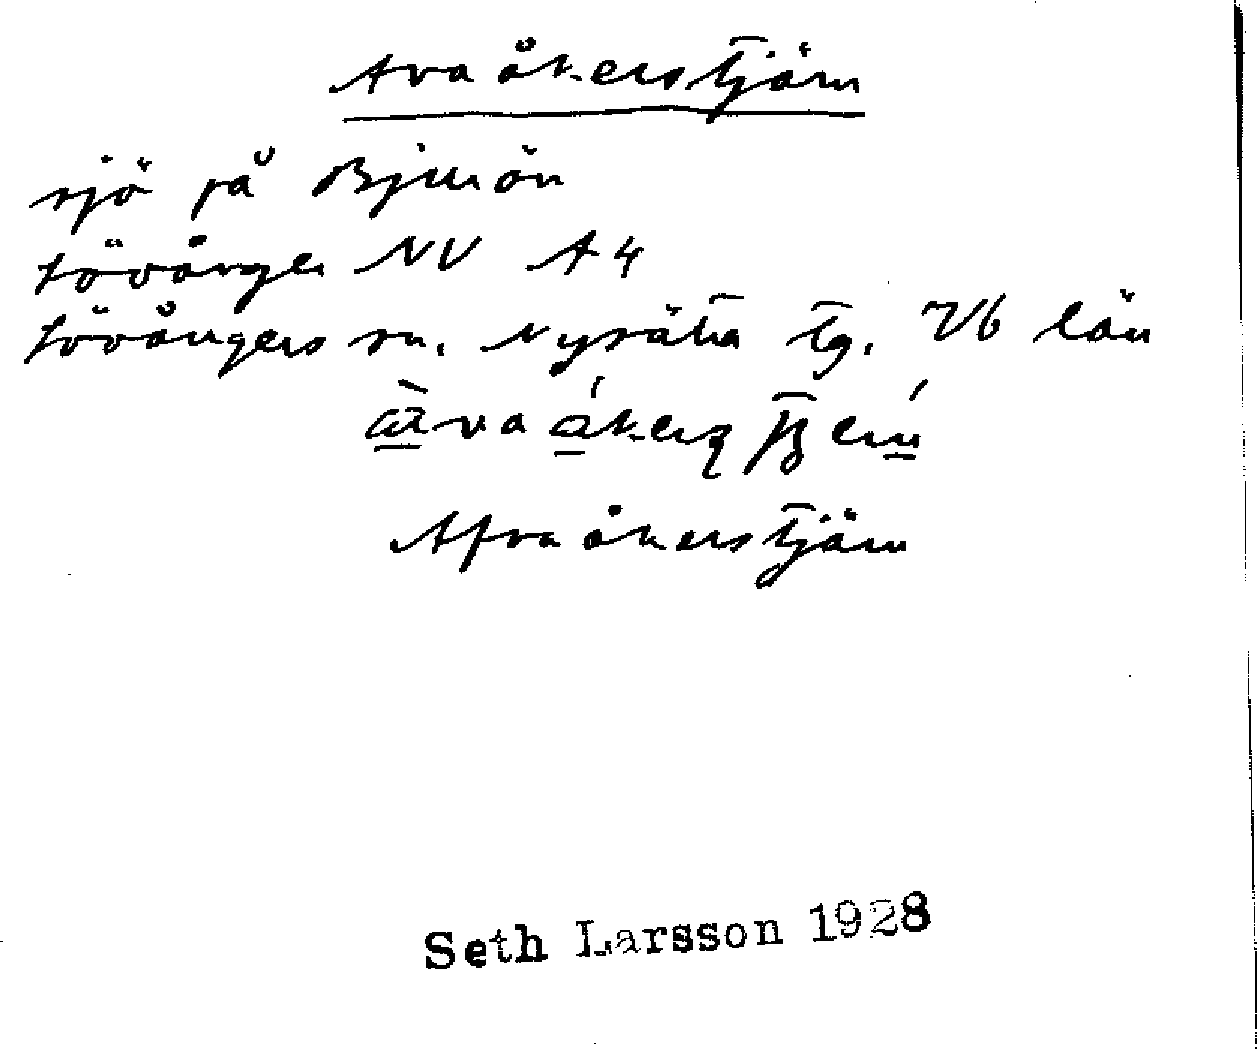 Avaåkerstjärn
sjö på Bjurön
Lövånger NV A4
Lövångers sn. Nysätra tg. Vb län
Afvaåkerstjärn
Seth Larsson 1928